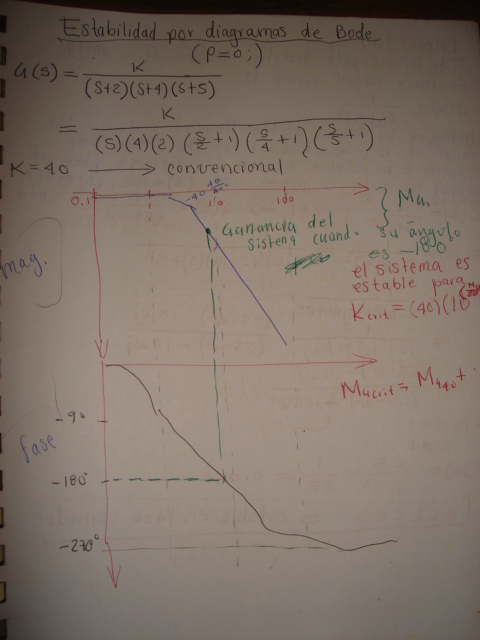 Estabilidad por diagramas de Bode
(P=0;)
G(s) = K
(s+2)(s+4)(s+5)
= K
(5)(4)(2) (s/2 +1) (s/4 +1) (s/5 +1)
K = 40 → convencional
0.1
100
Ganancia del
sistema cuand. su ángulo
es -180
el sistema es
estable para
Kcrit = (40)(10
mag.
fase
-180°
-270°